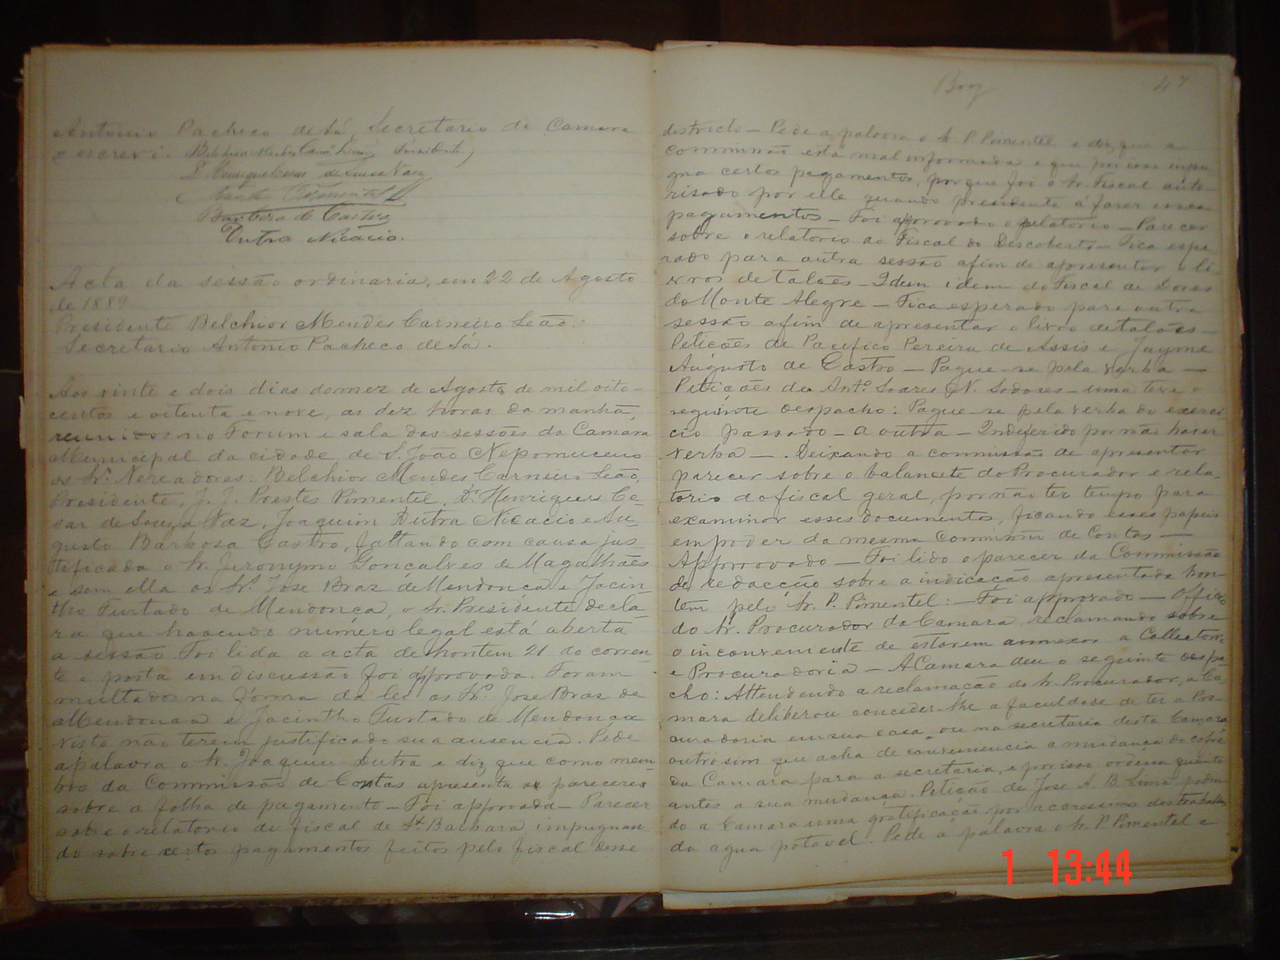 Antonio Pacheco de Sá, Secretario da Camara
o escrevi. Belchior Mendes Carneiro Leão, Presidente
D. Henrique Cesar de Souza Vaz
Prestes Pimentel
Barbosa de Castro
Dutra Nicacio.
Acta da sessão ordinaria, em 22 de Agosto
de 1889
Presidente Belchior Mendes Carneiro Leão.
Secretario Antonio Pacheco de Sá.
Aos vinte e dois dias do mez de Agosto de mil oito-
centos e oitenta e nove, as dez horas da manhã,
reunidos no Forum e sala das sessões da Camara
Municipal da cidade de S. João Nepomuceno
os Srs. Vereadores: Belchior Mendes Carneiro Leão,
Presidente, J. J. Prestes Pimentel, Dr. Henrique Ce-
sar de Souza Vaz, Joaquim Dutra Nicacio e Au-
gusto Barbosa Castro, faltando com causa jus-
tificada o Sr. Jeronymo Gonçalves de Magalhães
e sem ella os Srs. José Braz de Mendonca e Jacin-
tho Furtado de Mendonca, o Sr. Presidente decla-
ra que havendo numero legal está aberta
a sessão. Foi lida a acta de hontem 21 do corren-
te e posta em discussão foi approvada. Foram
multados na forma da lei os Srs. José Bras de
Mendonca e Jacintho Furtado de Mendonca
visto não terem justificado sua ausencia. Pede
a palavra o Sr. Joaquim Dutra e diz que como mem-
bro da Commissão de Contas apresenta os pareceres
sobre a folha de pagamento - Foi approvada - Parecer
sobre o relatorio do fiscal de Sta Barbara, impugnan-
do sobre certos pagamentos feitos pelo fiscal desse
47
districto - Pede a palavra o Sr. P. Pimentel e diz que a
commissão está mal informada e que por isso impu-
gna certos pagamentos, porque foi o Sr. Fiscal auto-
risado por elle quando presidente á fazer esses
pagamentos - Foi approvado o relatorio - Parecer
sobre o relatorio do Fiscal do Descoberto - Fica espe-
rado para outra sessão afim de apresentar o li-
vros de talões - Idem idem do Fiscal de Dores
do Monte Alegre - Fica esperado para outra
sessão afim de apresentar o livro de talões -
Petições de Pacifico Pereira de Assis e Jayme
Augusto de Castro - Pague-se pela verba -
Petições de Antº Soares N. Sodores - uma teve o
seguinte despacho: Pague-se pela verba do exerci-
cio passado - a outra - Indeferido por não haver
verba -. Deixando a commissão de apresentar
parecer sobre o balancete do Procurador e rela-
torio do fiscal geral, por não ter tempo para
examinar esses documentos, ficando esses papeis
em poder da mesma commissão de Contas -
Approvado - Foi lido o parecer da Commissão
de redacção sobre a indicação apresentada hon-
tem pelo Sr. P. Pimentel: - Foi approvado - Officio
do Sr. Procurador da Camara reclamando sobre
o inconveniente de estarem annexos a Collectoria
e Procuradoria - A Camara deu o seguinte despa-
cho: Attendendo a reclamação do Sr. Procurador, a Ca-
mara deliberou conceder-lhe a faculdade de ter a Pro-
curadoria em sua casa, ou na secretaria desta Camara
outro sim que acha de conveniencia a mudança do cofre
da Camara para a secretaria, e por isso ordena quanto
antes a sua mudança. Petição de Jose A. B. Lima pedin-
do a Camara uma gratificação por accressimo dos trabalhos
da agua potavel. Pede a palavra o Sr. P. Pimentel e
1 13:44